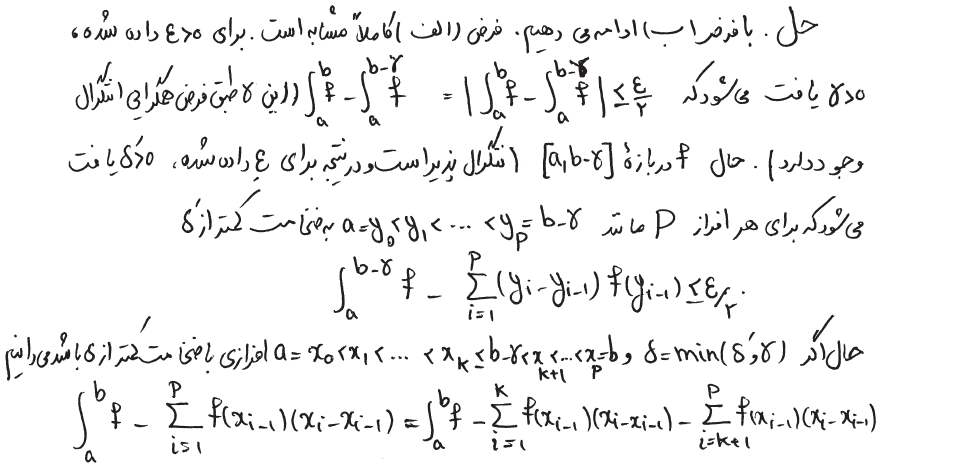 حل . با فرض (ب) ادامه می دهیم. فرض (الف) کاملاً مشابه است . برای ε>0 داده شده،
γ>0 یافت می شود که ∫_a^b f - ∫_a^{b-γ} f = |∫_a^b f - ∫_a^{b-γ} f| ≤ ε/۲ (این γ طبق فرض همگرایی انتگرال
وجود دارد). حال f در بازهٔ [a,b-γ] انتگرال پذیر است و در نتیجه برای ε داده شده، δ'>0 یافت
می شود که برای هر افراز P مانند a=y_0<y_1<...<y_p=b-γ به ضخامت کمتر از δ'
∫_a^{b-γ} f - Σ_{i=1}^{P} (y_i-y_{i-1}) f(y_{i-1}) ≤ ε/۲.
حال اگر δ=min(δ',γ) و a=x_0<x_1<...<x_k≤b-γ<x_{k+1}<...<x_p=b افرازی با ضخامت کمتر از δ باشد می دانیم
∫_a^b f - Σ_{i=1}^{P} f(x_{i-1})(x_i-x_{i-1}) = ∫_a^b f - Σ_{i=1}^{k} f(x_{i-1})(x_i-x_{i-1}) - Σ_{i=k+1}^{P} f(x_{i-1})(x_i-x_{i-1})